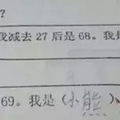 ?
我减去 27 后是 68。我是
69。我是(小熊)